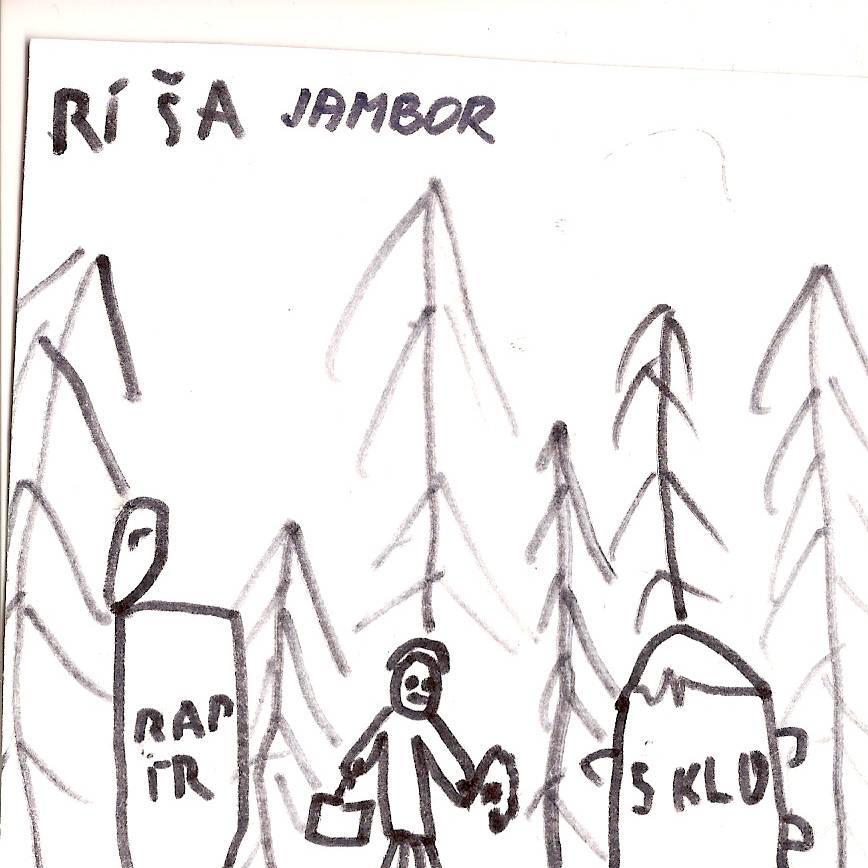 RÍŠA JAMBOR
PAP
ÍR
SKLO